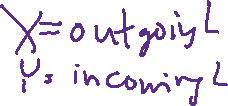 X = outgoing L
incoming L